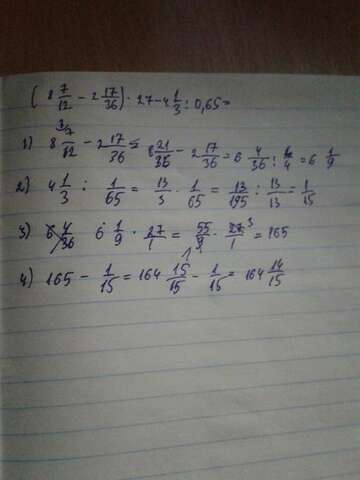 (8 7/12 − 2 17/36) · 27 − 4 1/3 : 0,65 =
1) 8 7/12 − 2 17/36 = 8 21/36 − 2 17/36 = 6 4/36 : 4/4 = 6 1/9
2) 4 1/3 : 1/65 = 13/3 · 1/65 = 13/195 : 13/13 = 1/15
3) 6 1/9 · 27/1 = 55/9 · 27/1 = 165
4) 165 − 1/15 = 164 15/15 − 1/15 = 164 14/15